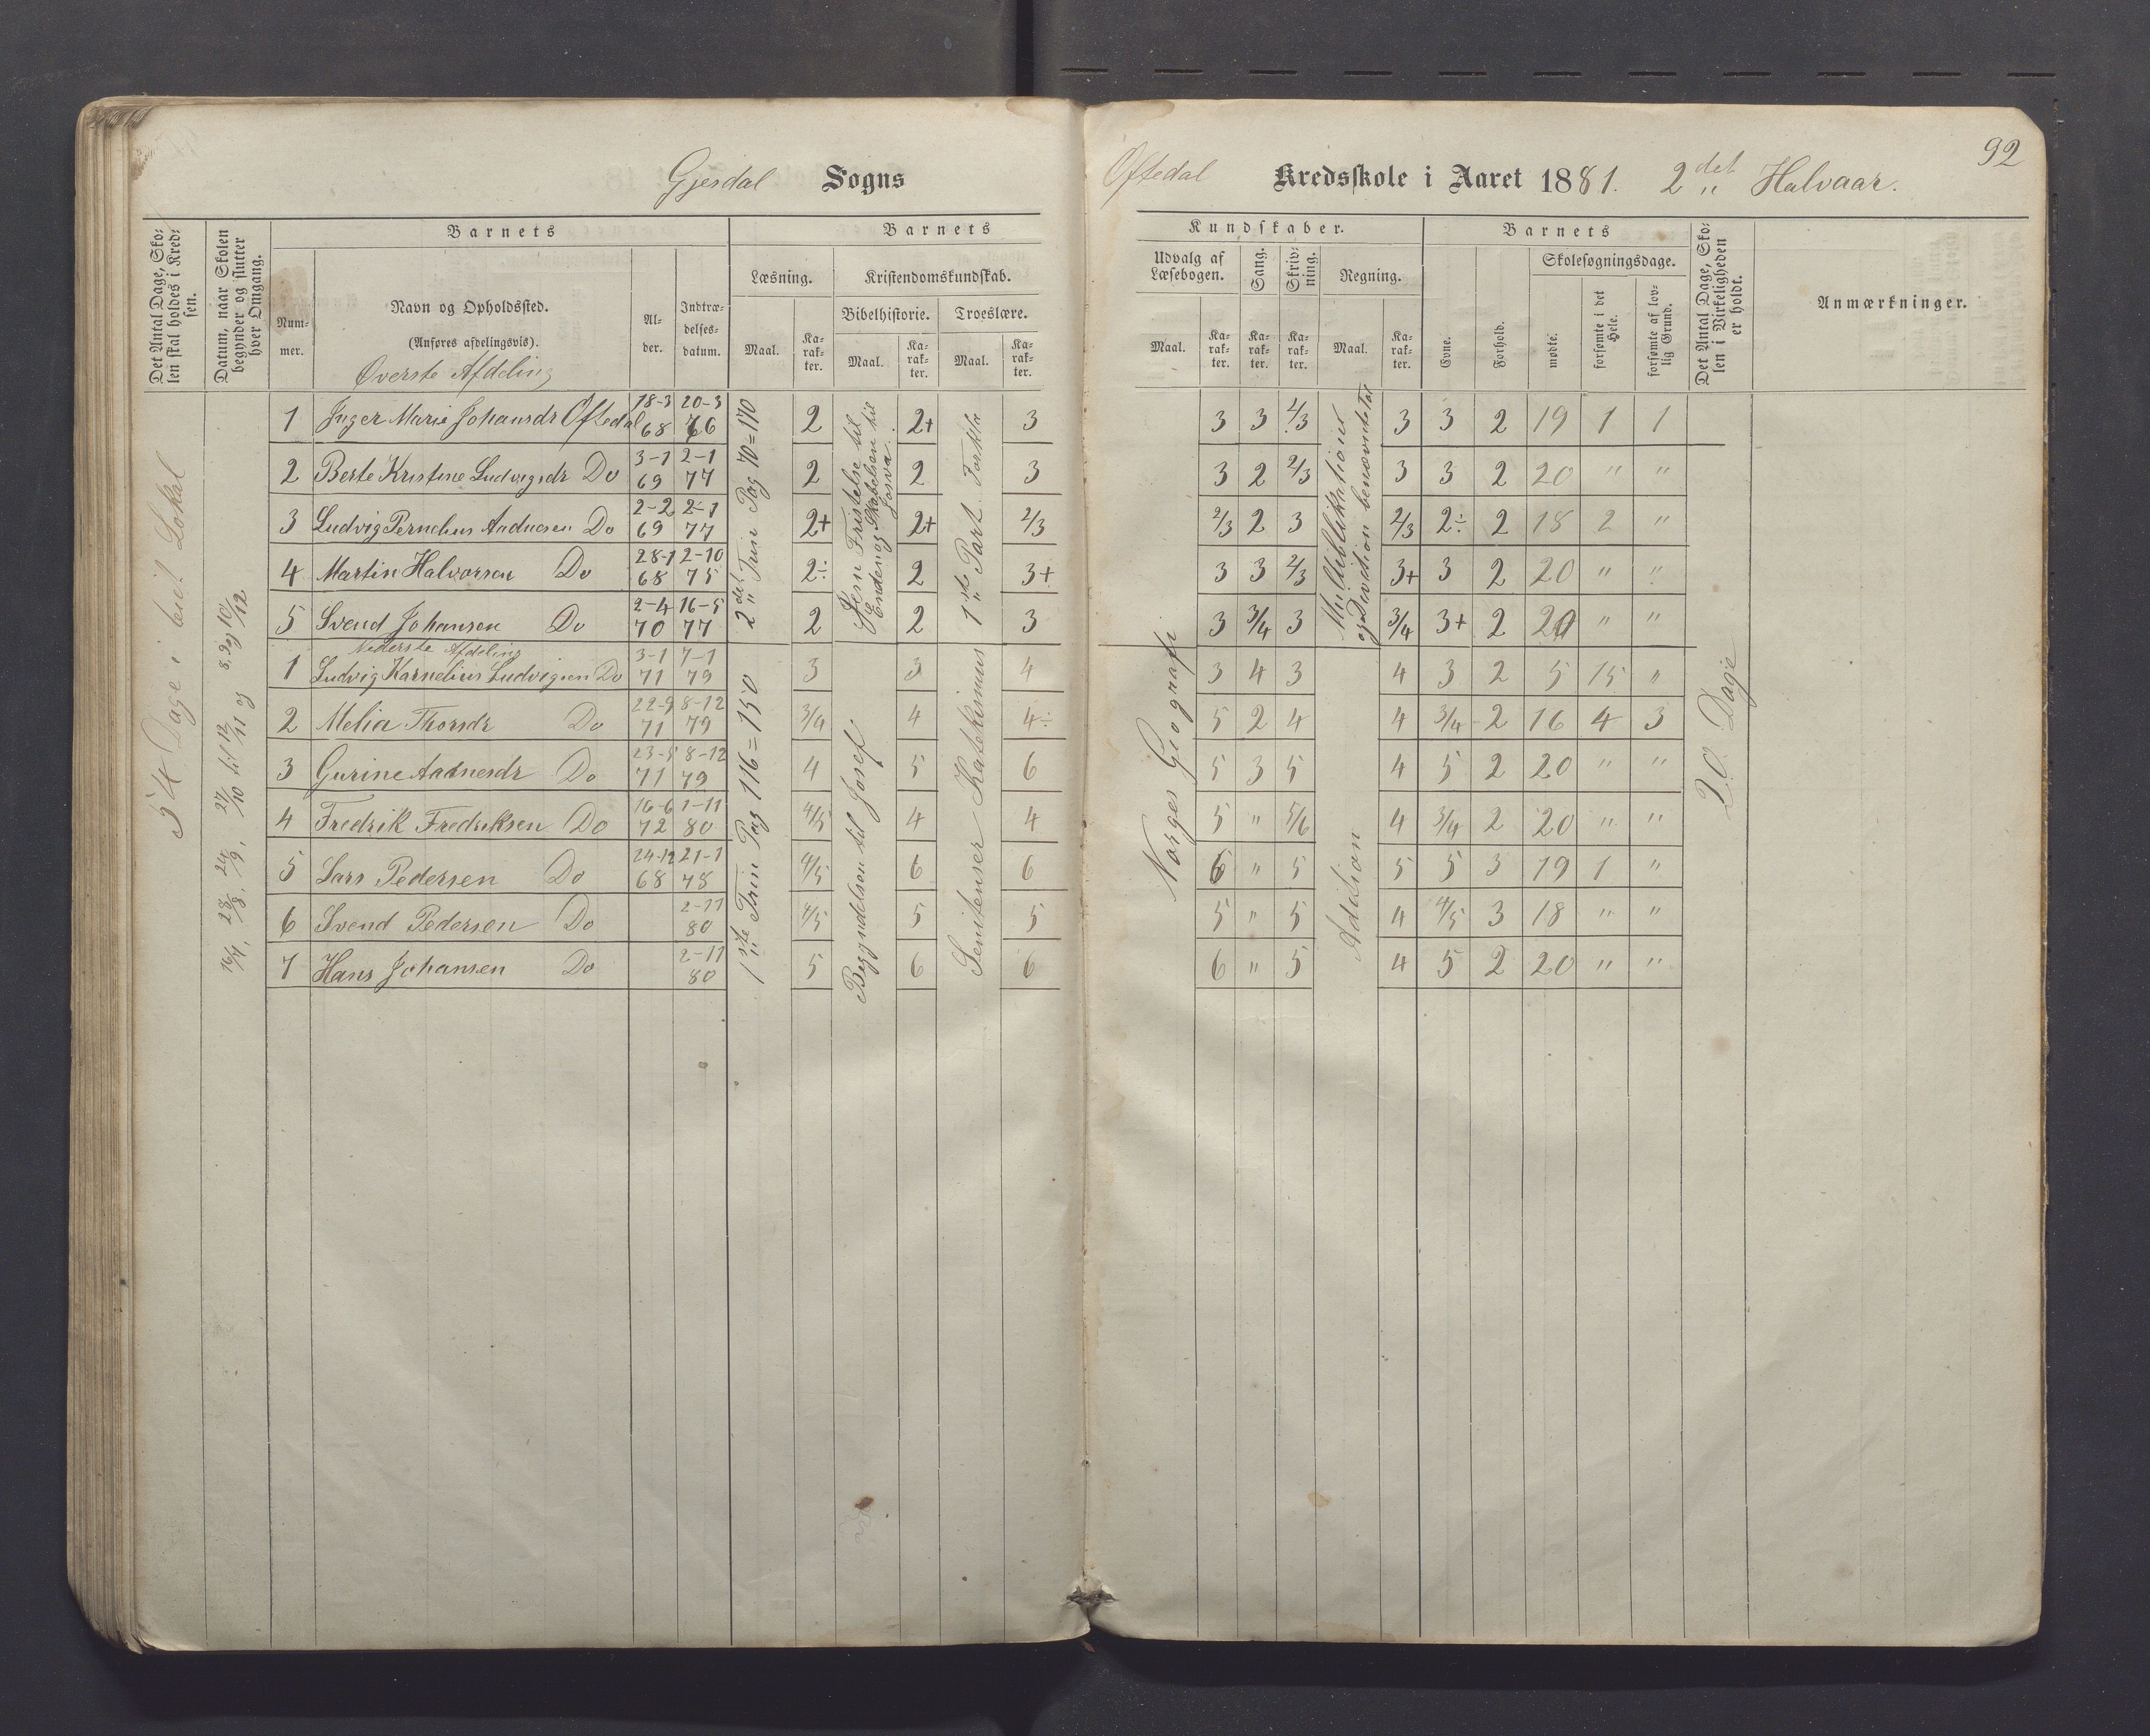 92
Gjesdal Sogns
Oftedal Kredsskole i Aaret 1881. 2det Halvaar.
Det Antal Dage, Skolen skal holdes i Kredsen.
Datum, naar Skolen begynder og slutter hver Omgang.
Barnets
Nummer.
Navn og Opholdssted.
(Anføres afdelingsvis).
Alder.
Indtrædelsesdatum.
Barnets
Læsning.
Maal.
Karakter.
Kristendomskundskab.
Bibelhistorie.
Maal.
Karakter.
Troeslære.
Maal.
Karakter.
Kundskaber.
Udvalg af Læsebogen.
Maal.
Karakter.
Sang.
Karakter.
Skrivning.
Karakter.
Regning.
Maal.
Karakter.
Barnets
Evne.
Forhold.
Skolesøgningsdage.
mødte.
forsømte i det Hele.
forsømte af lovlig Grund.
Det Antal Dage, Skolen i Virkeligheden er holdt.
Anmærkninger.
54 Dage i leiet Lokal
16/7, 23/8, 24/9, 27/10 til 12/11 og 8, 9 og 10/12
Øverste Afdeling
1 Inger Marie Johansdr Oftedal 18-3 68 20-3 76 2 2+ 3 3 3 2/3 3 3 2 19 1 1
2 Berte Kristine Ludvigsdr Do 3-1 69 2-1 77 2 2 3 3 2 2/3 3 3 2 20 " "
3 Ludvig Pernelius Aadnesen Do 2-2 69 2-1 77 2+ 2+ 2/3 2/3 2 3 2/3 2÷ 2 18 2 "
4 Martin Halvorsen Do 28-1 68 2-10 75 2÷ 2 3+ 3 3 2/3 3+ 3 2 20 " "
5 Svend Johansen Do 2-4 70 16-5 77 2 2 3 3 3/4 3 3/4 3+ 2 20 " "
Nederste Afdeling
1 Ludvig Karnelius Ludvigsen Do 3-1 71 7-1 79 3 3 4 3 4 3 4 3 2 5 15 "
2 Melia Thorsdr Do 22-9 71 8-12 79 3/4 4 4÷ 5 2 4 4 3/4 2 16 4 3
3 Gurine Aadnesdr Do 23-5 71 8-12 79 4 5 6 5 3 5 4 5 2 20 " "
4 Fredrik Fredriksen Do 16-6 72 1-11 80 4/5 4 4 5 " 5/6 4 3/4 2 20 " "
5 Lars Pedersen Do 24-12 68 21-1 78 4/5 6 6 6 " 5 5 5 3 19 1 "
6 Svend Pedersen Do 2-11 80 4/5 5 5 5 " 5 4 4/5 3 18 " "
7 Hans Johansen Do 2-11 80 5 6 6 6 " 5 4 5 2 20 " "
2det Trin Pag 70=170
1ste Trin Pag 116=150
Jen Fristelse til Enden og Skabelsen til Josva.
Begyndelsen til Josef
1ste Part Forklar
Sentenser Katekismus
Norges Geografi
Multiplikation og Division benævnte Tal
Addition
20 Dage